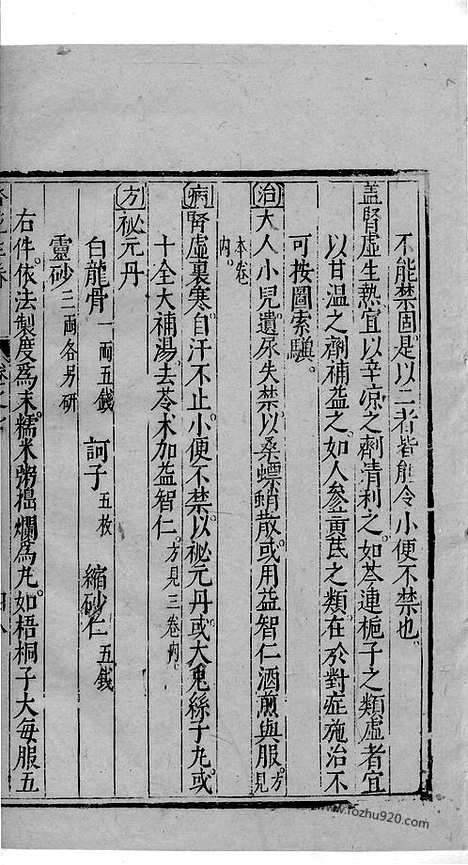 不能禁固。是以二者皆能令小便不禁也。
蓋腎虛生熱宜以辛凉之劑清利之。如芩連梔子之類虛者宜
以甘温之劑補益之。如人參黃芪之類。在於對症施治不
可按圖索驥。
治大人小兒遺尿失禁以桑螵蛸散。或用益智仁酒煎與服。方見
本卷内。
病腎虛裏寒。自汗不止。小便不禁。以祕元丹。或大兎絲子丸。或
十全大補湯。去苓术加益智仁。方見三卷内。
方祕元丹
白龍骨一兩五錢 訶子五枚 縮砂仁五錢
靈砂二兩各另研
右件。依法製度爲末。糯米粥搗爛爲丸。如梧桐子大。每服五
www.fozhu920.com